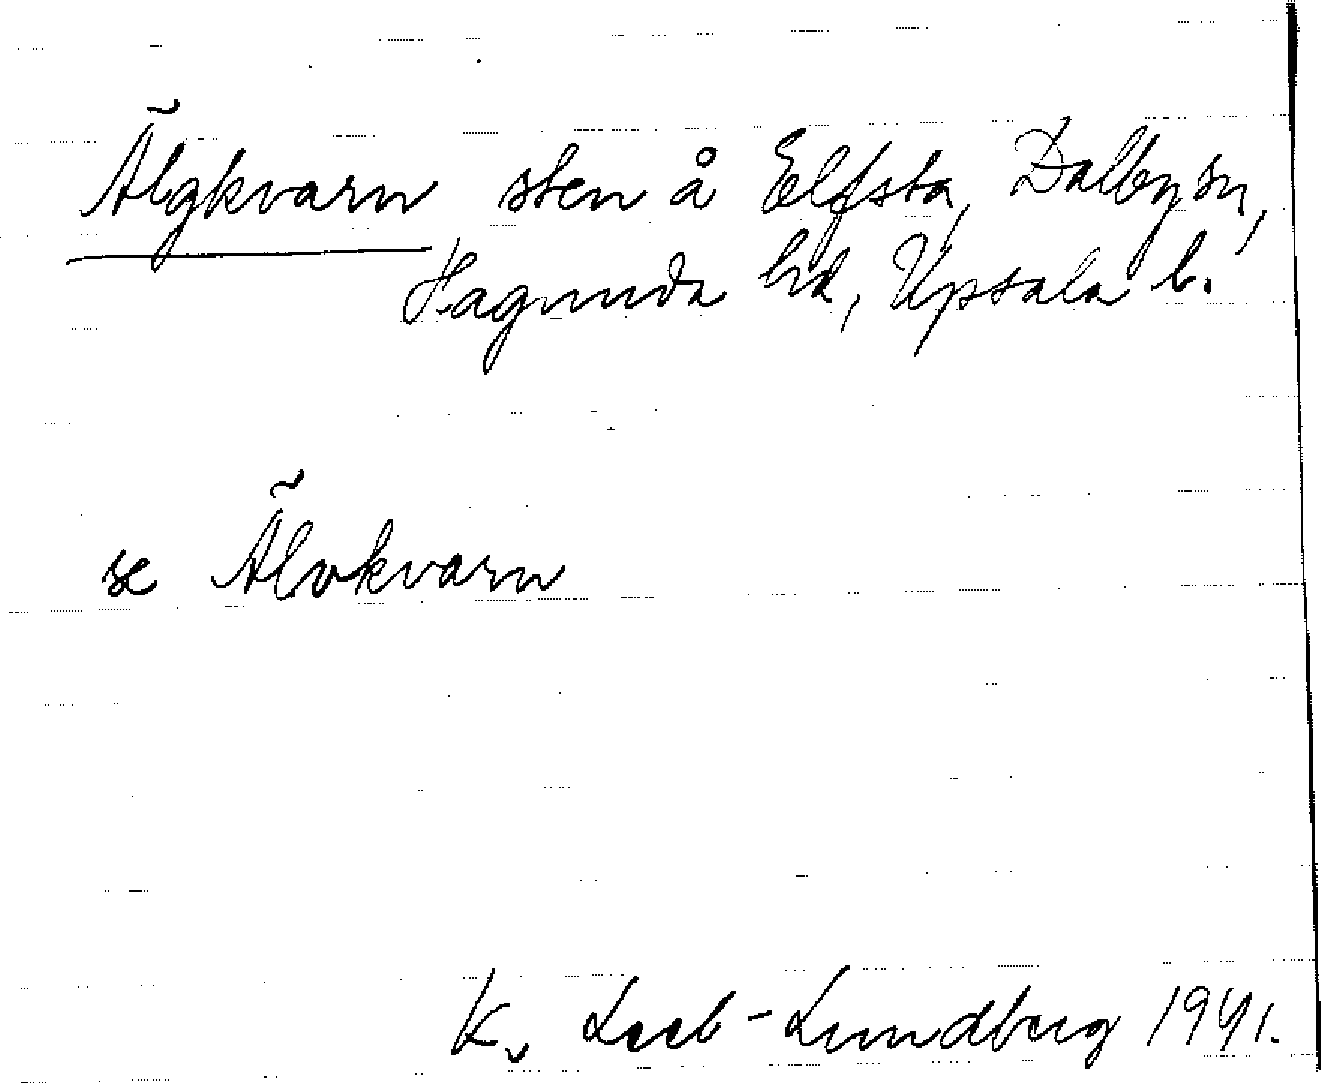 Älgkvarn sten å Elfsta, Dalby sn,
Hagunda hd, Upsala l.
se Älvkvarn
K. Leeb-Lundberg 1941.